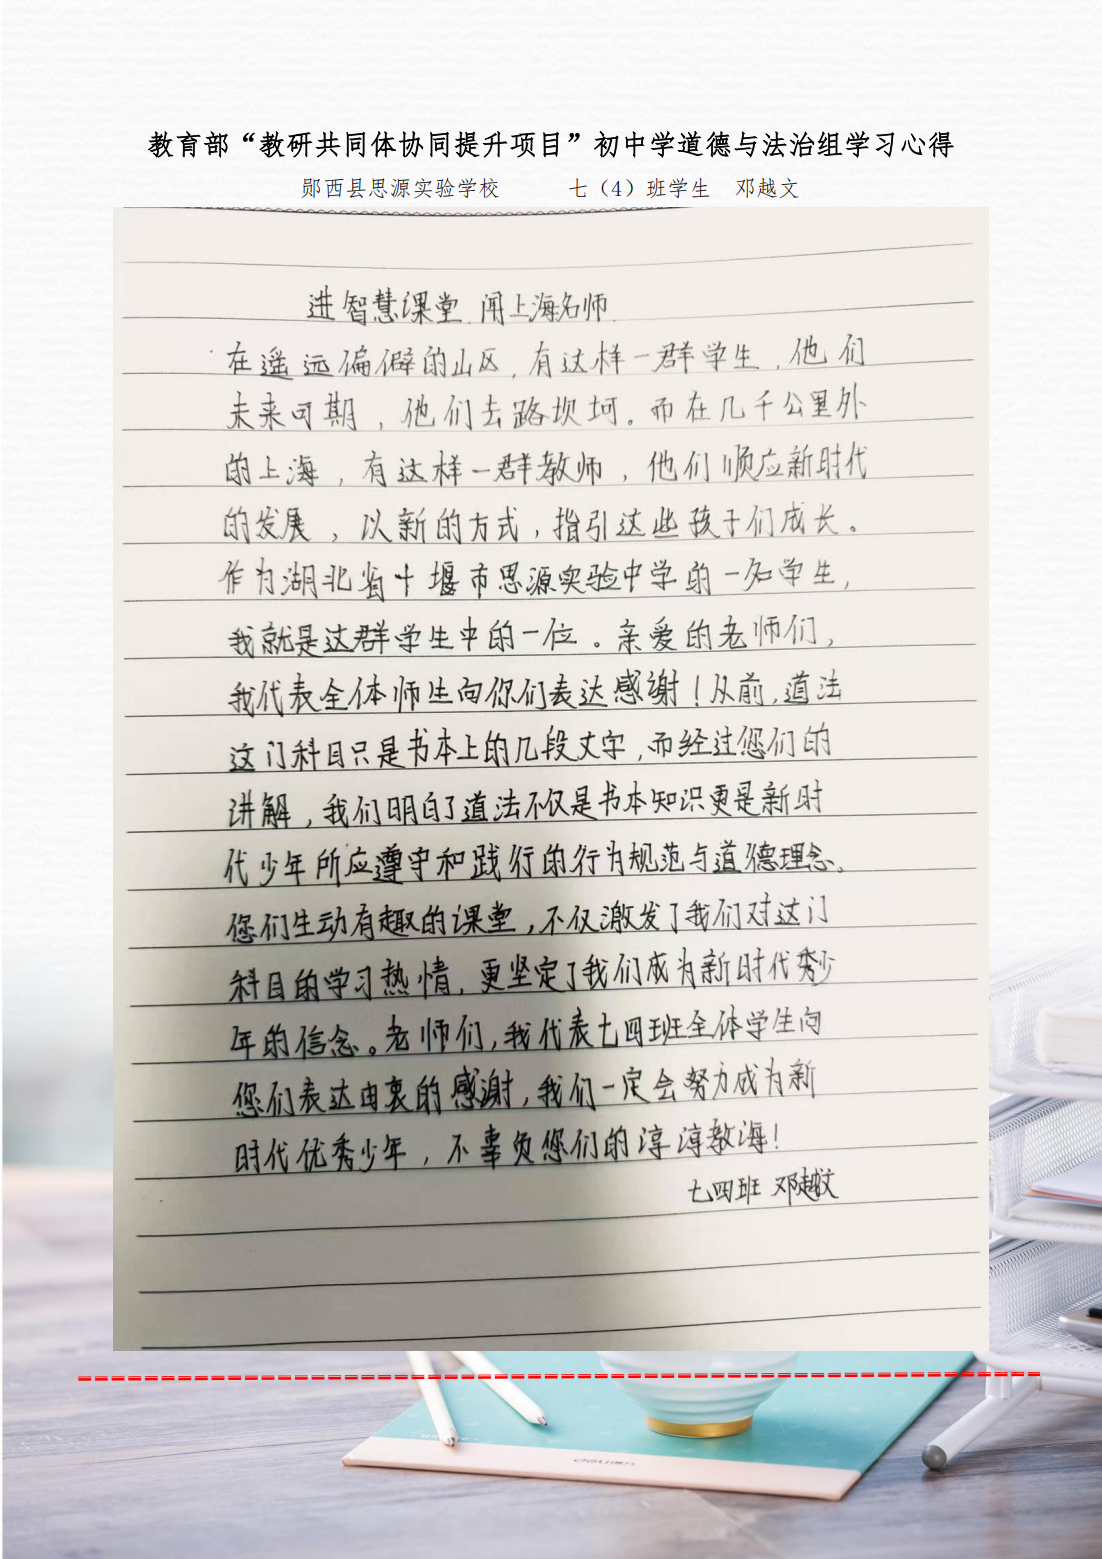 教育部“教研共同体协同提升项目”初中学道德与法治组学习心得
郧西县思源实验学校 七（4）班学生 邓越文
进智慧课堂 闻上海名师
在遥远偏僻的山区，有这样一群学生，他们
未来可期，他们去路坎坷。而在几千公里外
的上海，有这样一群教师，他们顺应新时代
的发展，以新的方式，指引这些孩子们成长。
作为湖北省十堰市思源实验中学的一名学生，
我就是这群学生中的一位。亲爱的老师们，
我代表全体师生向你们表达感谢！从前，道法
这门科目只是书本上的几段文字，而经过您们的
讲解，我们明白了道法不仅是书本知识更是新时
代少年所应遵守和践行的行为规范与道德理念。
您们生动有趣的课堂，不仅激发了我们对这门
科目的学习热情，更坚定了我们成为新时代秀少
年的信念。老师们，我代表七四班全体学生向
您们表达由衷的感谢，我们一定会努力成为新
时代优秀少年，不辜负您们的淳淳教海！
七四班 邓越文
deli得力